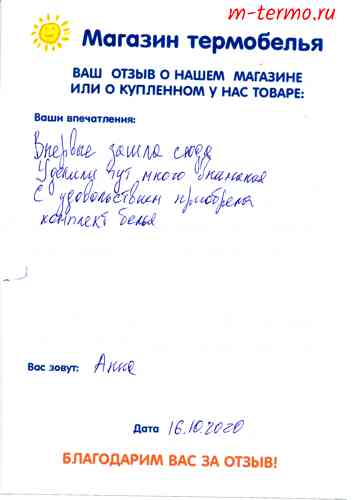 m-termo.ru
Магазин термобелья
ВАШ ОТЗЫВ О НАШЕМ МАГАЗИНЕ
ИЛИ О КУПЛЕННОМ У НАС ТОВАРЕ:
Ваши впечатления:
Впервые зашла сюда
Уделили тут много внимания
С удовольствием приобрела
комплект белья
Вас зовут: Анна
Дата 16.10.2020
БЛАГОДАРИМ ВАС ЗА ОТЗЫВ!